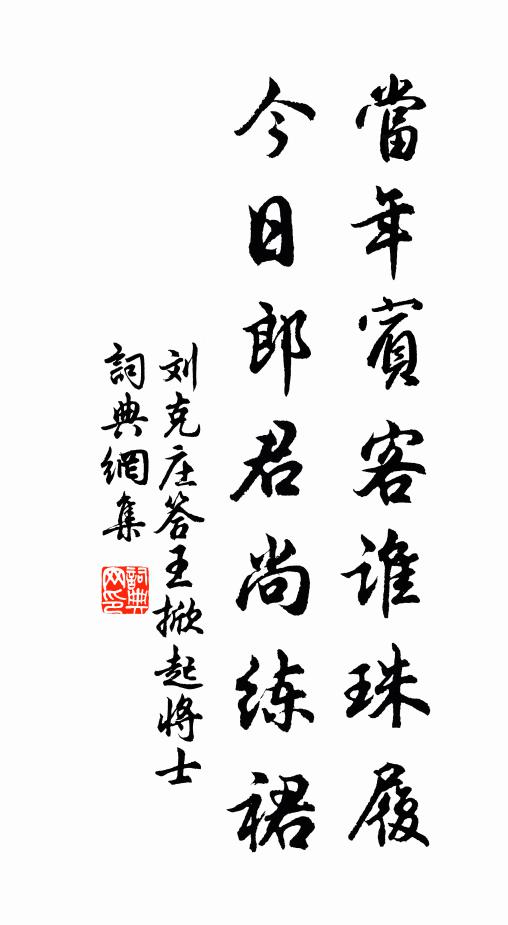 當年賓客谁珠履
今日郎君尚练裙
刘克庄答王掀起将士
詞典網集
詞典网印